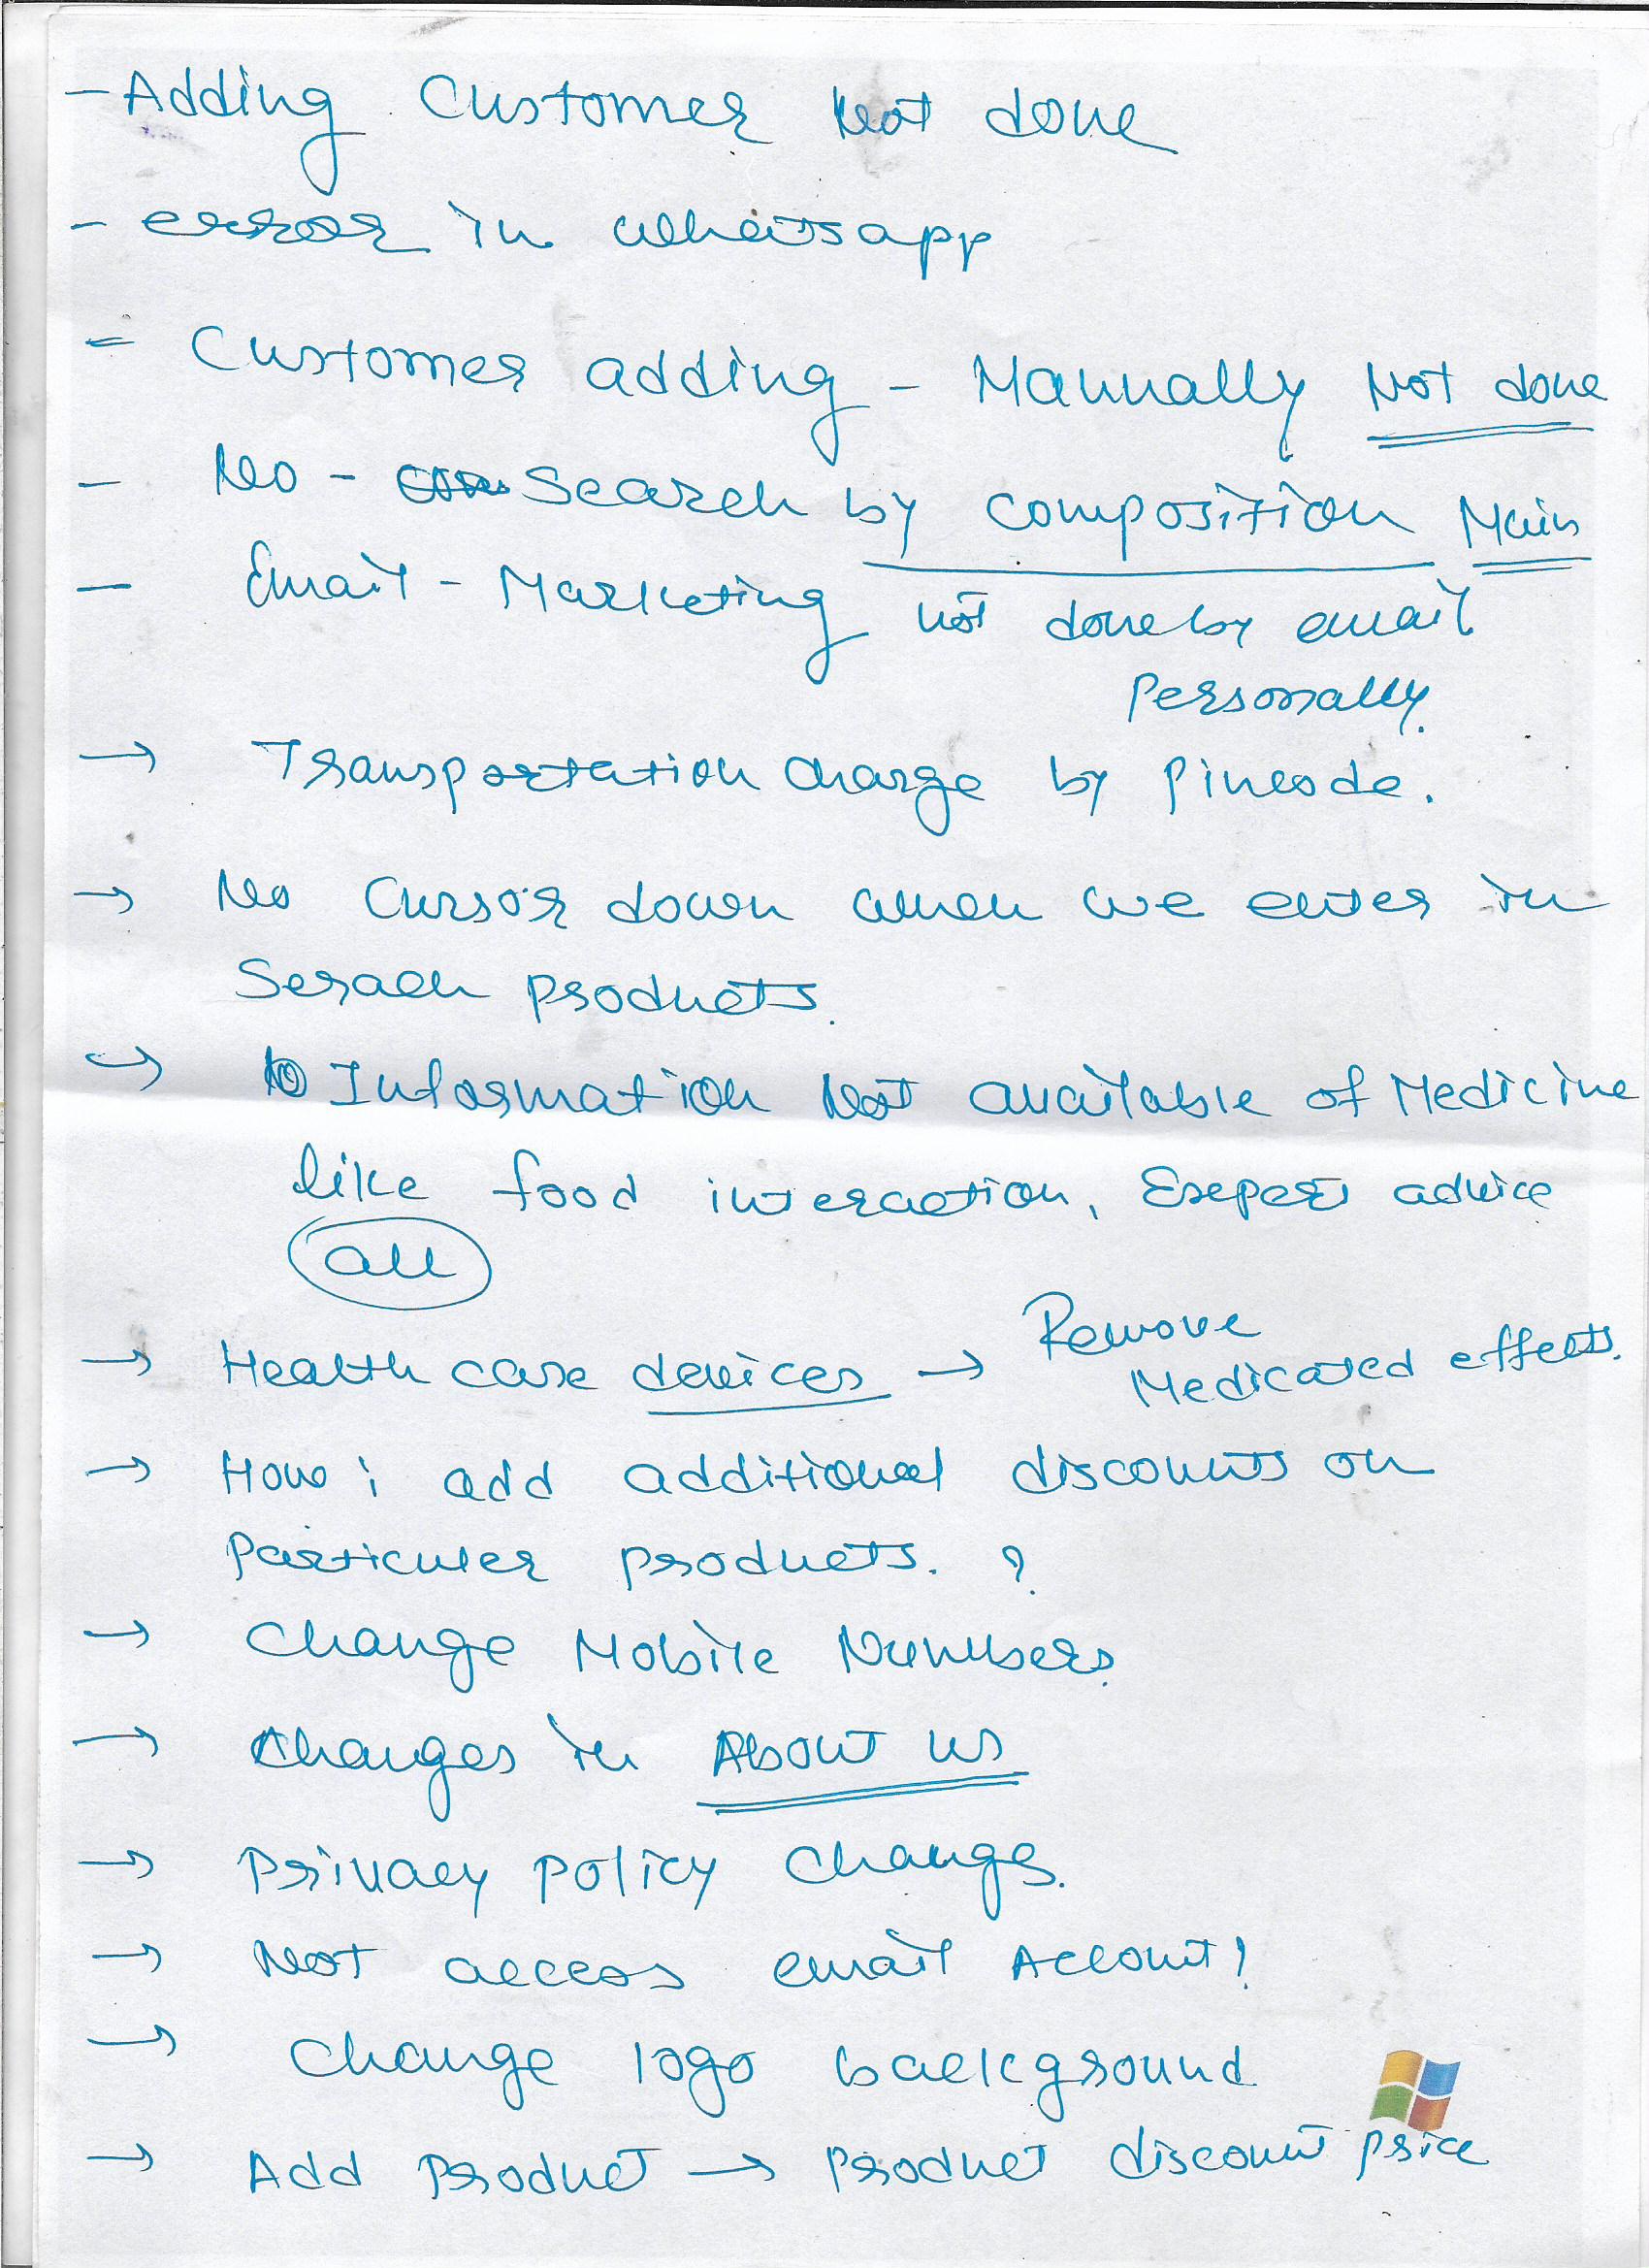 - Adding Customer Not done
- error in whatsapp
= Customer adding - Mannally Not done
- No - Search by composition Main
- Email - Marketing not done by email
Personally.
→ Transportation charge by Pincode.
→ No Cursor down when we enter in
Serach products.
→ Information Not available of Medicine
like food interaction, Expert advice
all
→ Health care devices → Remove
Medicated effects.
→ How i add additional discounts on
Particuler products. ?
→ Change Mobile Numbers.
→ Changes in About us
→ Privacy policy change.
→ Not access email Account!
→ Change logo background
→ Add Product → Product discount price